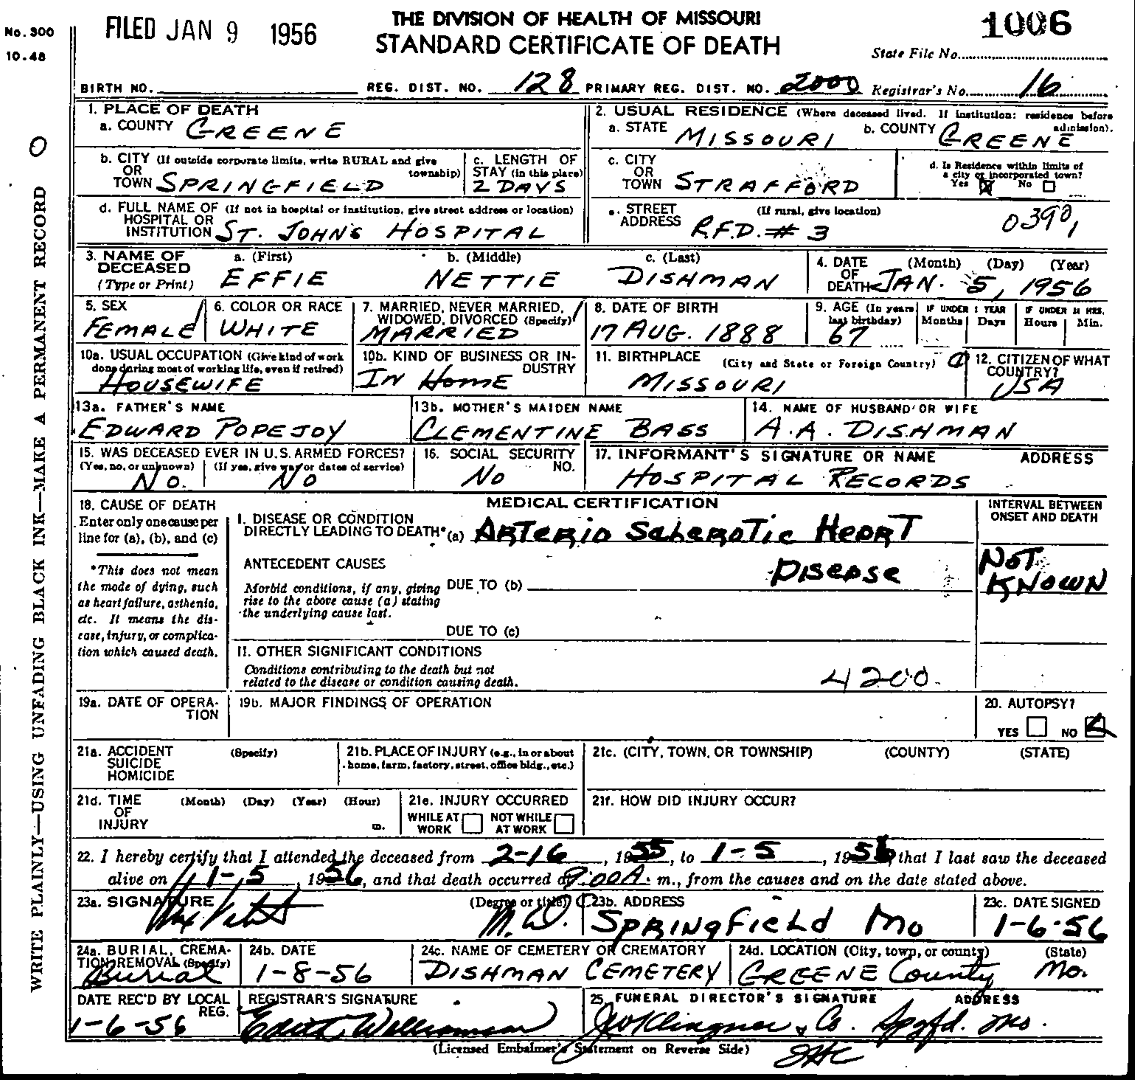 No. 300
10.48
FILED JAN 9 1956
THE DIVISION OF HEALTH OF MISSOURI
STANDARD CERTIFICATE OF DEATH
1006
State File No.
BIRTH NO. REG. DIST. NO. 128 PRIMARY REG. DIST. NO. 2000 Registrar's No. 16
WRITE PLAINLY—USING UNFADING BLACK INK—MAKE A PERMANENT RECORD
1. PLACE OF DEATH
a. COUNTY GREENE
2. USUAL RESIDENCE (Where deceased lived. If institution: residence before admission).
a. STATE MISSOURI b. COUNTY GREENE
b. CITY (If outside corporate limits, write RURAL and give township)
OR
TOWN SPRINGFIELD
c. LENGTH OF STAY (in this place)
2 DAYS
c. CITY
OR
TOWN STRAFFORD
d. Is Residence within limits of a city or incorporated town?
Yes X No
d. FULL NAME OF (If not in hospital or institution, give street address or location)
HOSPITAL OR
INSTITUTION ST. JOHN'S HOSPITAL
e. STREET (If rural, give location)
ADDRESS R.F.D. # 3
0390,
3. NAME OF DECEASED
(Type or Print)
a. (First) b. (Middle) c. (Last)
EFFIE NETTIE DISHMAN
4. DATE OF DEATH (Month) (Day) (Year)
JAN. 5, 1956
5. SEX
FEMALE
6. COLOR OR RACE
WHITE
7. MARRIED, NEVER MARRIED, WIDOWED, DIVORCED (Specify)
MARRIED
8. DATE OF BIRTH
17 AUG. 1888
9. AGE (In years last birthday)
67
IF UNDER 1 YEAR
Months Days
IF UNDER 24 HRS.
Hours Min.
10a. USUAL OCCUPATION (Give kind of work done during most of working life, even if retired)
HOUSEWIFE
10b. KIND OF BUSINESS OR INDUSTRY
IN HOME
11. BIRTHPLACE (City and State or Foreign Country)
MISSOURI
12. CITIZEN OF WHAT COUNTRY?
USA
13a. FATHER'S NAME
EDWARD POPEJOY
13b. MOTHER'S MAIDEN NAME
CLEMENTINE BASS
14. NAME OF HUSBAND OR WIFE
A.A. DISHMAN
15. WAS DECEASED EVER IN U.S. ARMED FORCES?
(Yes, no, or unknown) (If yes, give war or dates of service)
NO. NO
16. SOCIAL SECURITY NO.
NO
17. INFORMANT'S SIGNATURE OR NAME ADDRESS
HOSPITAL RECORDS
18. CAUSE OF DEATH
Enter only one cause per line for (a), (b), and (c)
*This does not mean the mode of dying, such as heart failure, asthenia, etc. It means the disease, injury, or complication which caused death.
MEDICAL CERTIFICATION
I. DISEASE OR CONDITION
DIRECTLY LEADING TO DEATH* (a) ARTERIO SCLEROTIC HEART
DISEASE
ANTECEDENT CAUSES
Morbid conditions, if any, giving rise to the above cause (a) stating the underlying cause last.
DUE TO (b)
DUE TO (c)
INTERVAL BETWEEN ONSET AND DEATH
NOT KNOWN
II. OTHER SIGNIFICANT CONDITIONS
Conditions contributing to the death but not related to the disease or condition causing death.
4200.
19a. DATE OF OPERATION
19b. MAJOR FINDINGS OF OPERATION
20. AUTOPSY?
YES NO
21a. ACCIDENT (Specify)
SUICIDE
HOMICIDE
21b. PLACE OF INJURY (e.g., in or about home, farm, factory, street, office bldg., etc.)
21c. (CITY, TOWN, OR TOWNSHIP) (COUNTY) (STATE)
21d. TIME OF INJURY (Month) (Day) (Year) (Hour)
m.
21e. INJURY OCCURRED
WHILE AT WORK NOT WHILE AT WORK
21f. HOW DID INJURY OCCUR?
22. I hereby certify that I attended the deceased from 2-16, 1955, to 1-5, 1956, that I last saw the deceased
alive on 1-5, 1956, and that death occurred at 9:00A. m., from the causes and on the date stated above.
23a. SIGNATURE (Degree or title)
M.D.
23b. ADDRESS
SPRINGFIELD MO
23c. DATE SIGNED
1-6-56
24a. BURIAL, CREMATION, REMOVAL (Specify)
Burial
24b. DATE
1-8-56
24c. NAME OF CEMETERY OR CREMATORY
DISHMAN CEMETERY
24d. LOCATION (City, town, or county) (State)
GREENE COUNTY MO.
DATE REC'D BY LOCAL REG.
1-6-56
REGISTRAR'S SIGNATURE
Edith Williamson
25. FUNERAL DIRECTOR'S SIGNATURE ADDRESS
JW Klingner & Co. Spgfd. Mo.
(Licensed Embalmer's Statement on Reverse Side)